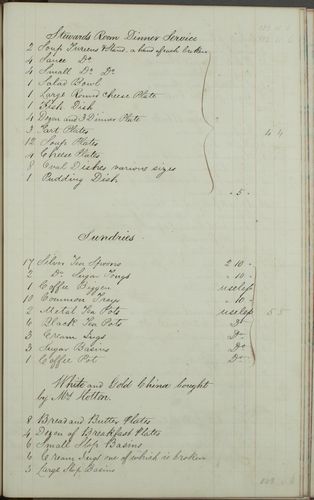 Stewards Room Dinner Service
2 Soup Tureens & Stand. a hand of each broken
4 Sauce Do
4 Small Do Do
1 Salad Bowl
1 Large Round Cheese Plate
1 Fish Dish
4 Dozen and 3 Dinner Plate
3 Tart Plates
12 Soup Plates
4 Cheese Plates
8 Oval Dishes various sizes
1 Pudding Dish
- 5 -
4 4
Sundries.
17 Silver Tea Spoons 2 10 -
2 Do Sugar Tongs - 10 -
1 Coffee Biggen useless
10 Common Trays - 10 -
2 Metal Tea Pots useless
6 Black Tea Pots Do
3 Cream Jugs Do
3 Sugar Basins Do
1 Coffee Pot Do
5 5
White and Gold China bought
by Mrs Hotton.
8 Bread and Butter Plates
4 Dozen of Breakfast Plates
6 Small Slop Basins
6 Cream Jugs one of which is broken
3 Large Slop Basins